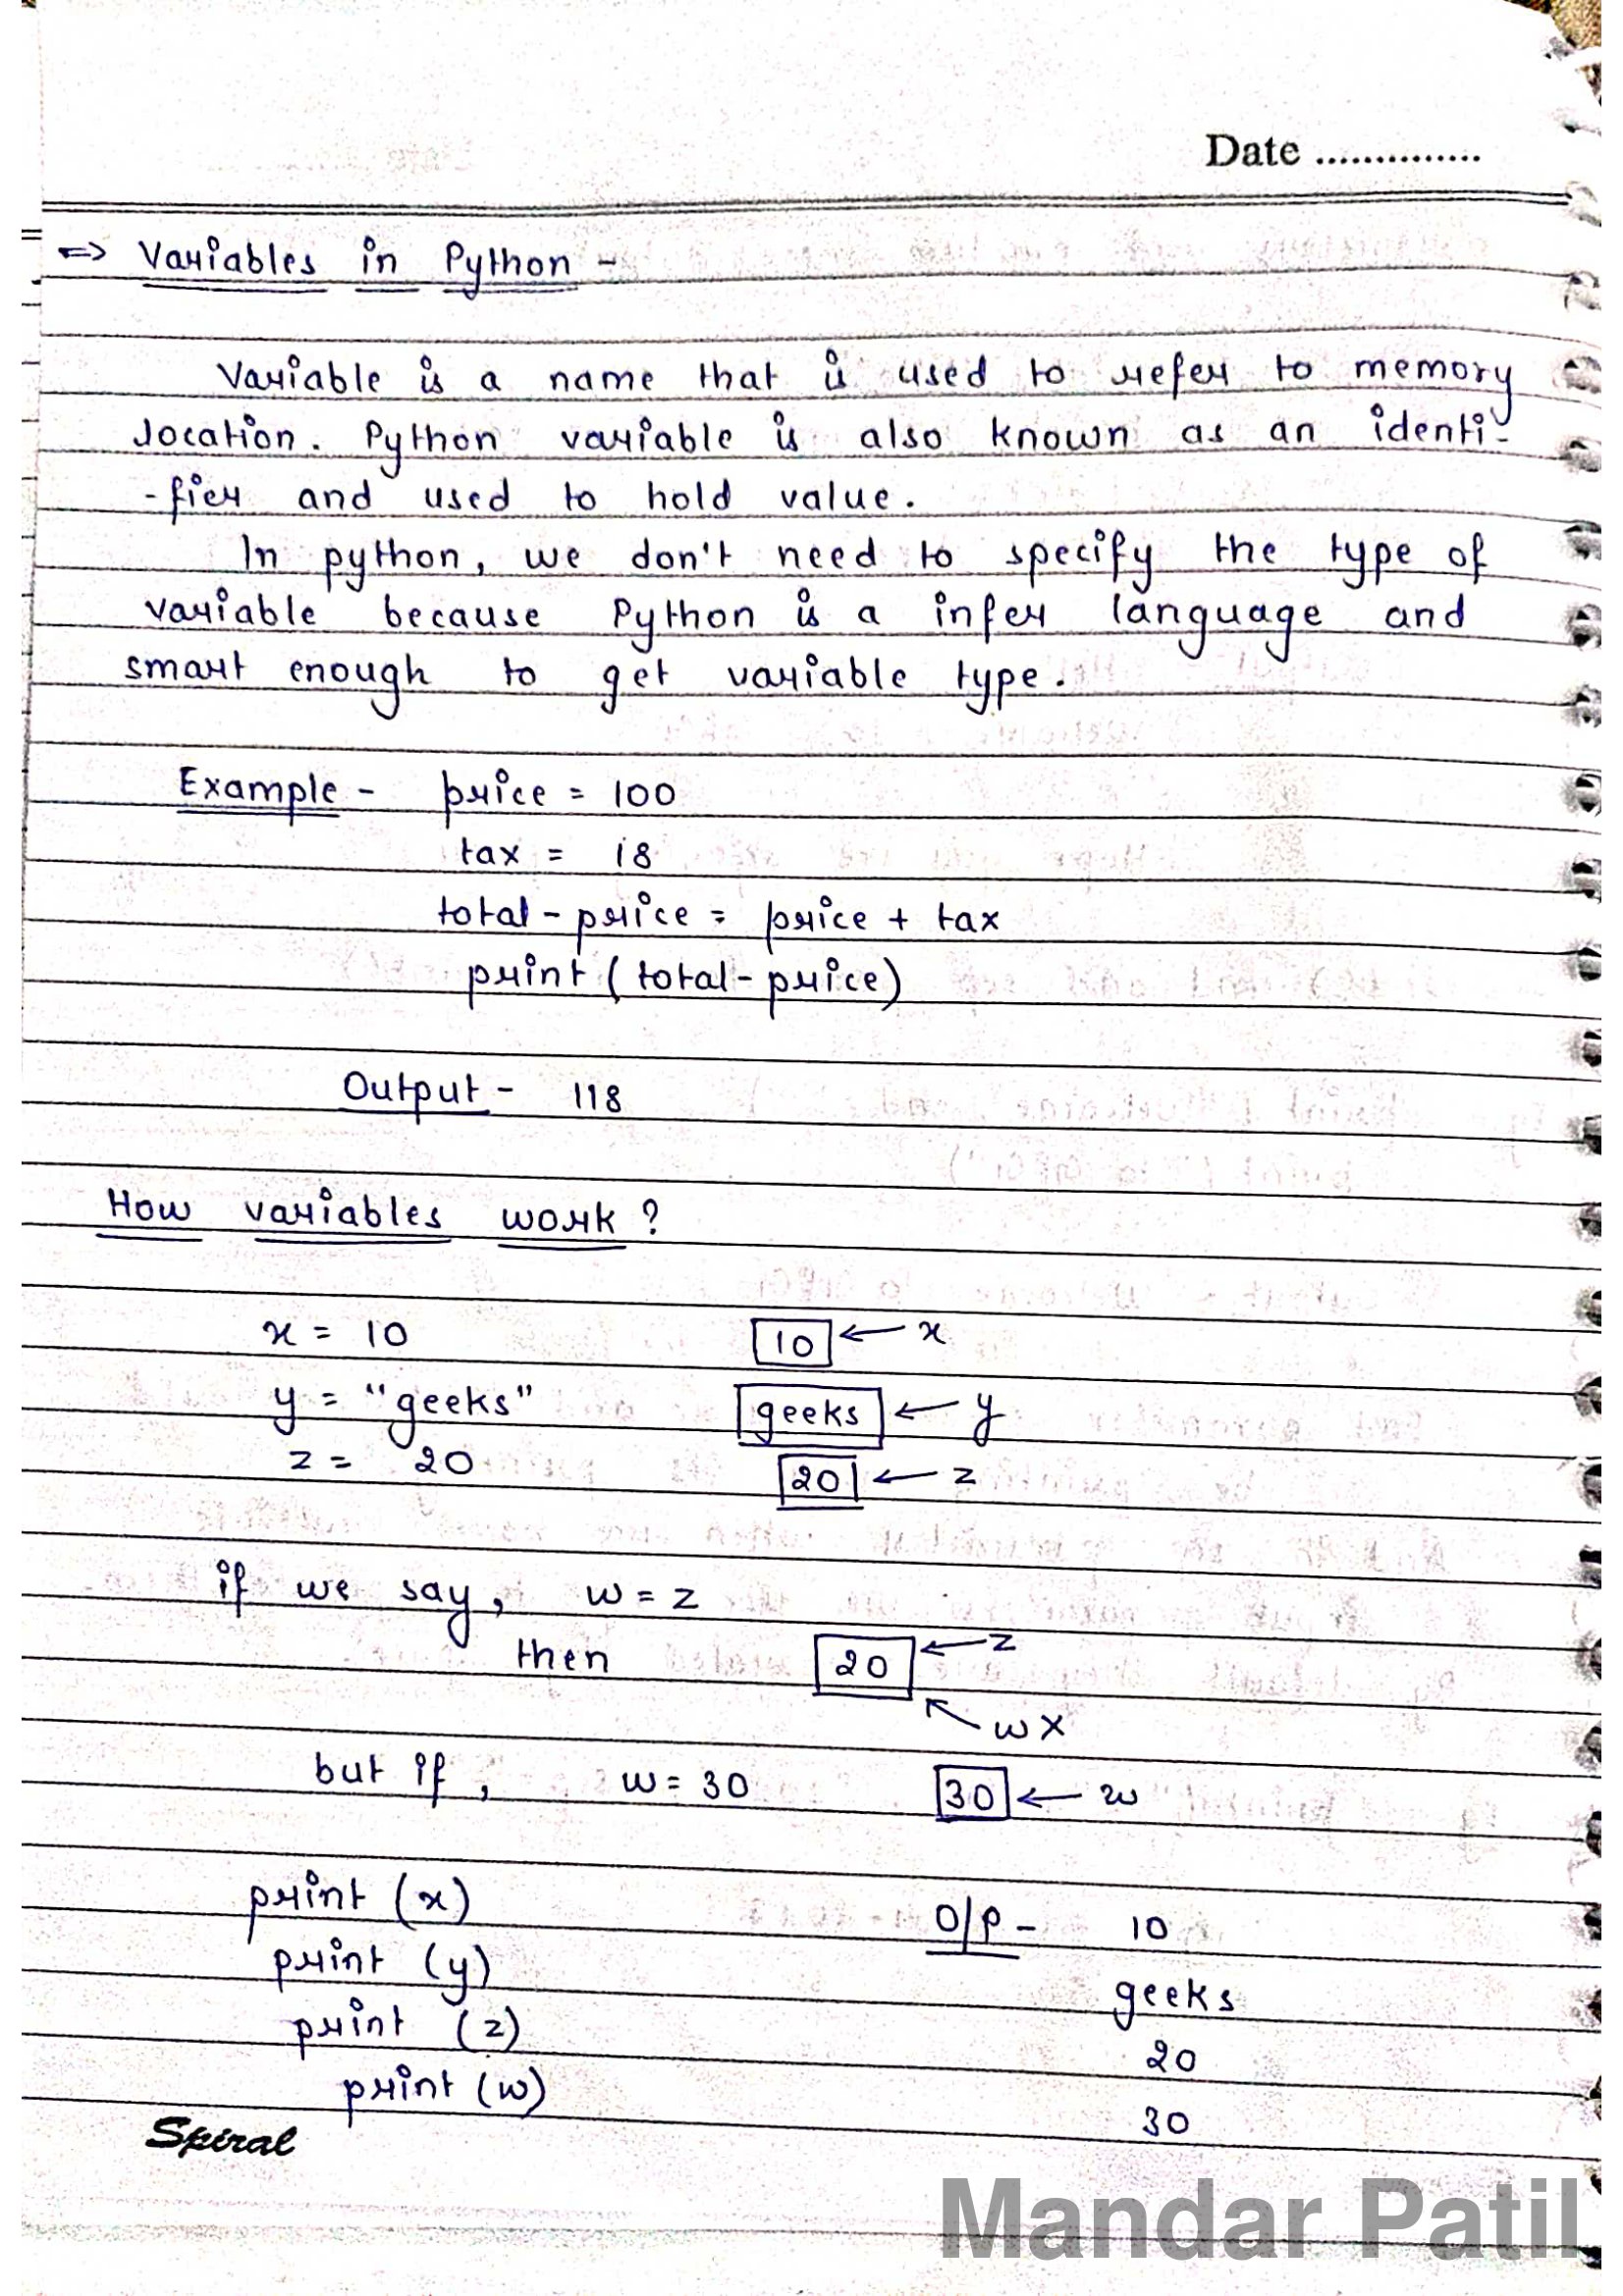 Date ...............
=> Variables in Python -
Variable is a name that is used to refer to memory
location. Python variable is also known as an identi-
-fier and used to hold value.
In python, we don't need to specify the type of
variable because Python is a infer language and
smart enough to get variable type.
Example - price = 100
tax = 18
total-price = price + tax
print (total-price)
Output - 118
How variables work ?
x = 10 10 ← x
y = "geeks" geeks ← y
z = 20 20 ← z
if we say, w = z
then 20 ← z
↖ w X
but if, w = 30 30 ← w
print (x) O/P - 10
print (y) geeks
print (z) 20
print (w) 30
Spiral
Mandar Patil